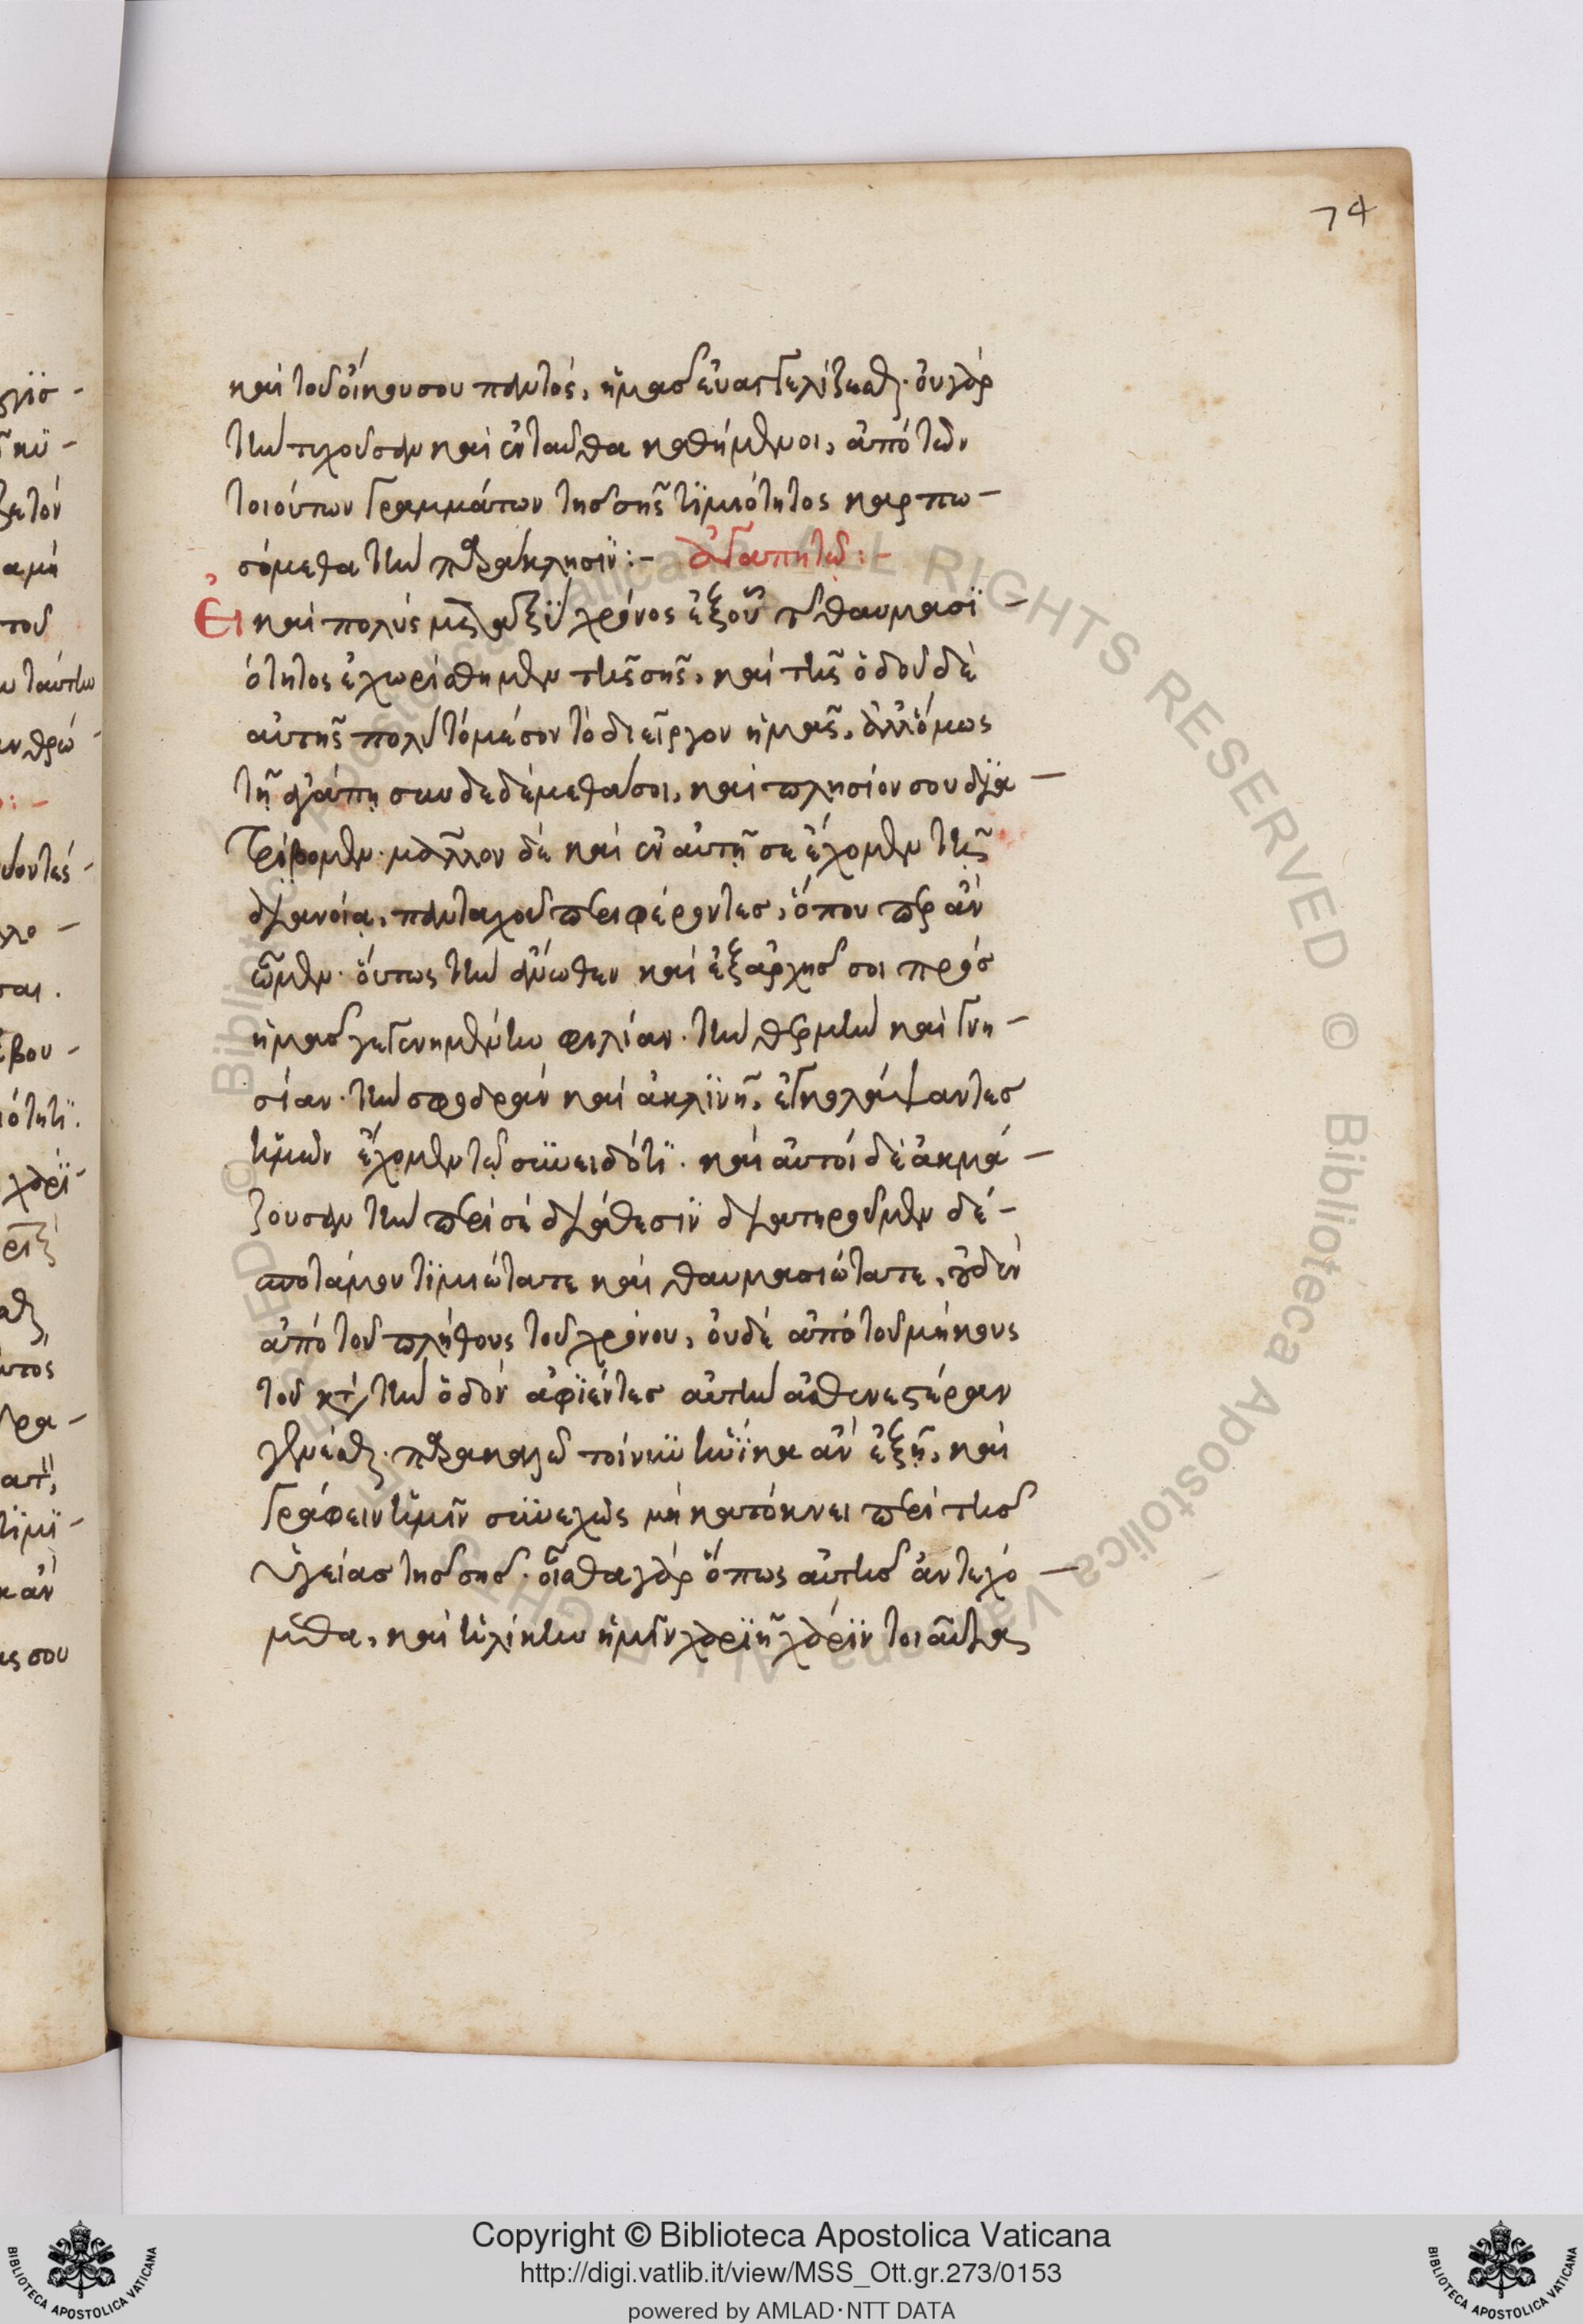 74
καὶ τοῦ οἴκου σου παντὸς, ἡμᾶς εὐαγγελίζεσθαι· οὐ γὰρ
τὴν τυχοῦσαν καὶ ἐνταῦθα καθήμενοι, ἀπὸ τῶν
τοιούτων γραμμάτων τῆς σῆς τιμιότητος καρπω-
σόμεθα τὴν παράκλησιν :- ἀγαπητῷ :-
Εἰ καὶ πολὺς μεταξὺ χρόνος ἐξ οὗ τῆς θαυμασι-
ότητος ἐχωρίσθημεν τῆς σῆς, καὶ τῆς ὁδοῦ δὲ
αὐτῆς πολὺ τὸ μέσον τὸ διεῖργον ἡμᾶς, ἀλλ' ὅμως
τῇ ἀγάπῃ συνδεδέμεθά σοι, καὶ πλησίον σου δια-
τρίβομεν· μᾶλλον δὲ καὶ ἐν αὐτῇ σε ἔχομεν τῇ
διανοίᾳ, πανταχοῦ περιφέροντες, ὅπουπερ ἂν
ὦμεν· οὕτως τὴν ἄνωθεν καὶ ἐξ ἀρχῆς σοι πρὸς
ἡμᾶς γεγενημένην φιλίαν· τὴν θερμὴν καὶ γνη-
σίαν· τὴν σφοδρὰν καὶ ἀκλινῆ, ἐγκολάψαντες
ἡμῶν ἔχομεν τῷ συνειδότι· καὶ αὐτοὶ δὲ ἀκμά-
ζουσαν τὴν περὶ σὲ διάθεσιν διατηροῦμεν δέ-
σποτά μου τιμιώτατε καὶ θαυμασιώτατε, οὐδὲν
ἀπὸ τοῦ πλήθους τοῦ χρόνου, οὐδὲ ἀπὸ τοῦ μήκους
τοῦ κατὰ τὴν ὁδὸν ἀφιέντες αὐτὴν ἀσθενεστέραν
γενέσθαι· παρακαλῶ τοίνυν ἡνίκα ἂν ἐξῇ, καὶ
γράφειν ἡμῖν συνεχῶς μὴ κατόκνει περὶ τῆς
ὑγείας τῆς σῆς· οἶσθα γὰρ ὅπως αὐτῆς ἀντεχό-
μεθα, καὶ ἡλίκην ἡμῖν χαριῇ χάριν τοιαῦτα
Copyright © Biblioteca Apostolica Vaticana
http://digi.vatlib.it/view/MSS_Ott.gr.273/0153
powered by AMLAD·NTT DATA